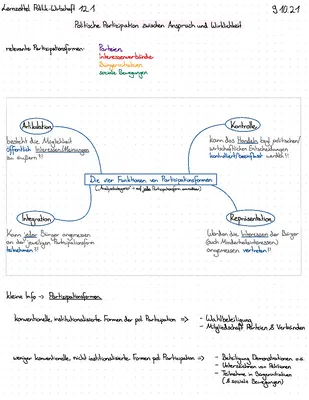 Lernzettel Politik-Wirtschaft 12.1 9.10.21
Politische Partizipation zwischen Anspruch und Wirklichkeit
relevante Partizipationsformen: Parteien
Interessenverbände
Bürgerinitiativen
soziale Bewegungen
Artikulation
besteht die Möglichkeit
öffentlich Interessen/Meinungen
zu äußern?!
Kontrolle
kann das Handeln bzgl. politischen/
wirtschaftlichen Entscheidungen
kontrolliert/beeinflusst werden?!
Die vier Funktionen von Partizipationsformen
("Analysekategorien" = auf jede Partizipationsform anwendbar)
Integration
Kann jeder Bürger angemessen
an der jeweiligen Partizipationsform
teilnehmen?!
Repräsentation
Werden die Interessen der Bürger
(auch Minderheitsinteressen)
angemessen vertreten?!
kleine Info -> Partizipationsformen
konventionelle, institutionalisierte Formen der pol. Partizipation => - Wahlbeteiligung
- Mitgliedschaft Parteien & Verbänden
weniger konventionelle, nicht institutionalisierte Formen pol. Partizipation => - Beteiligung Demonstrationen o.ä.
- Unterzeichnen von Petitionen
- Teilnahme in Bürgerinitiativen
(& soziale Bewegungen)